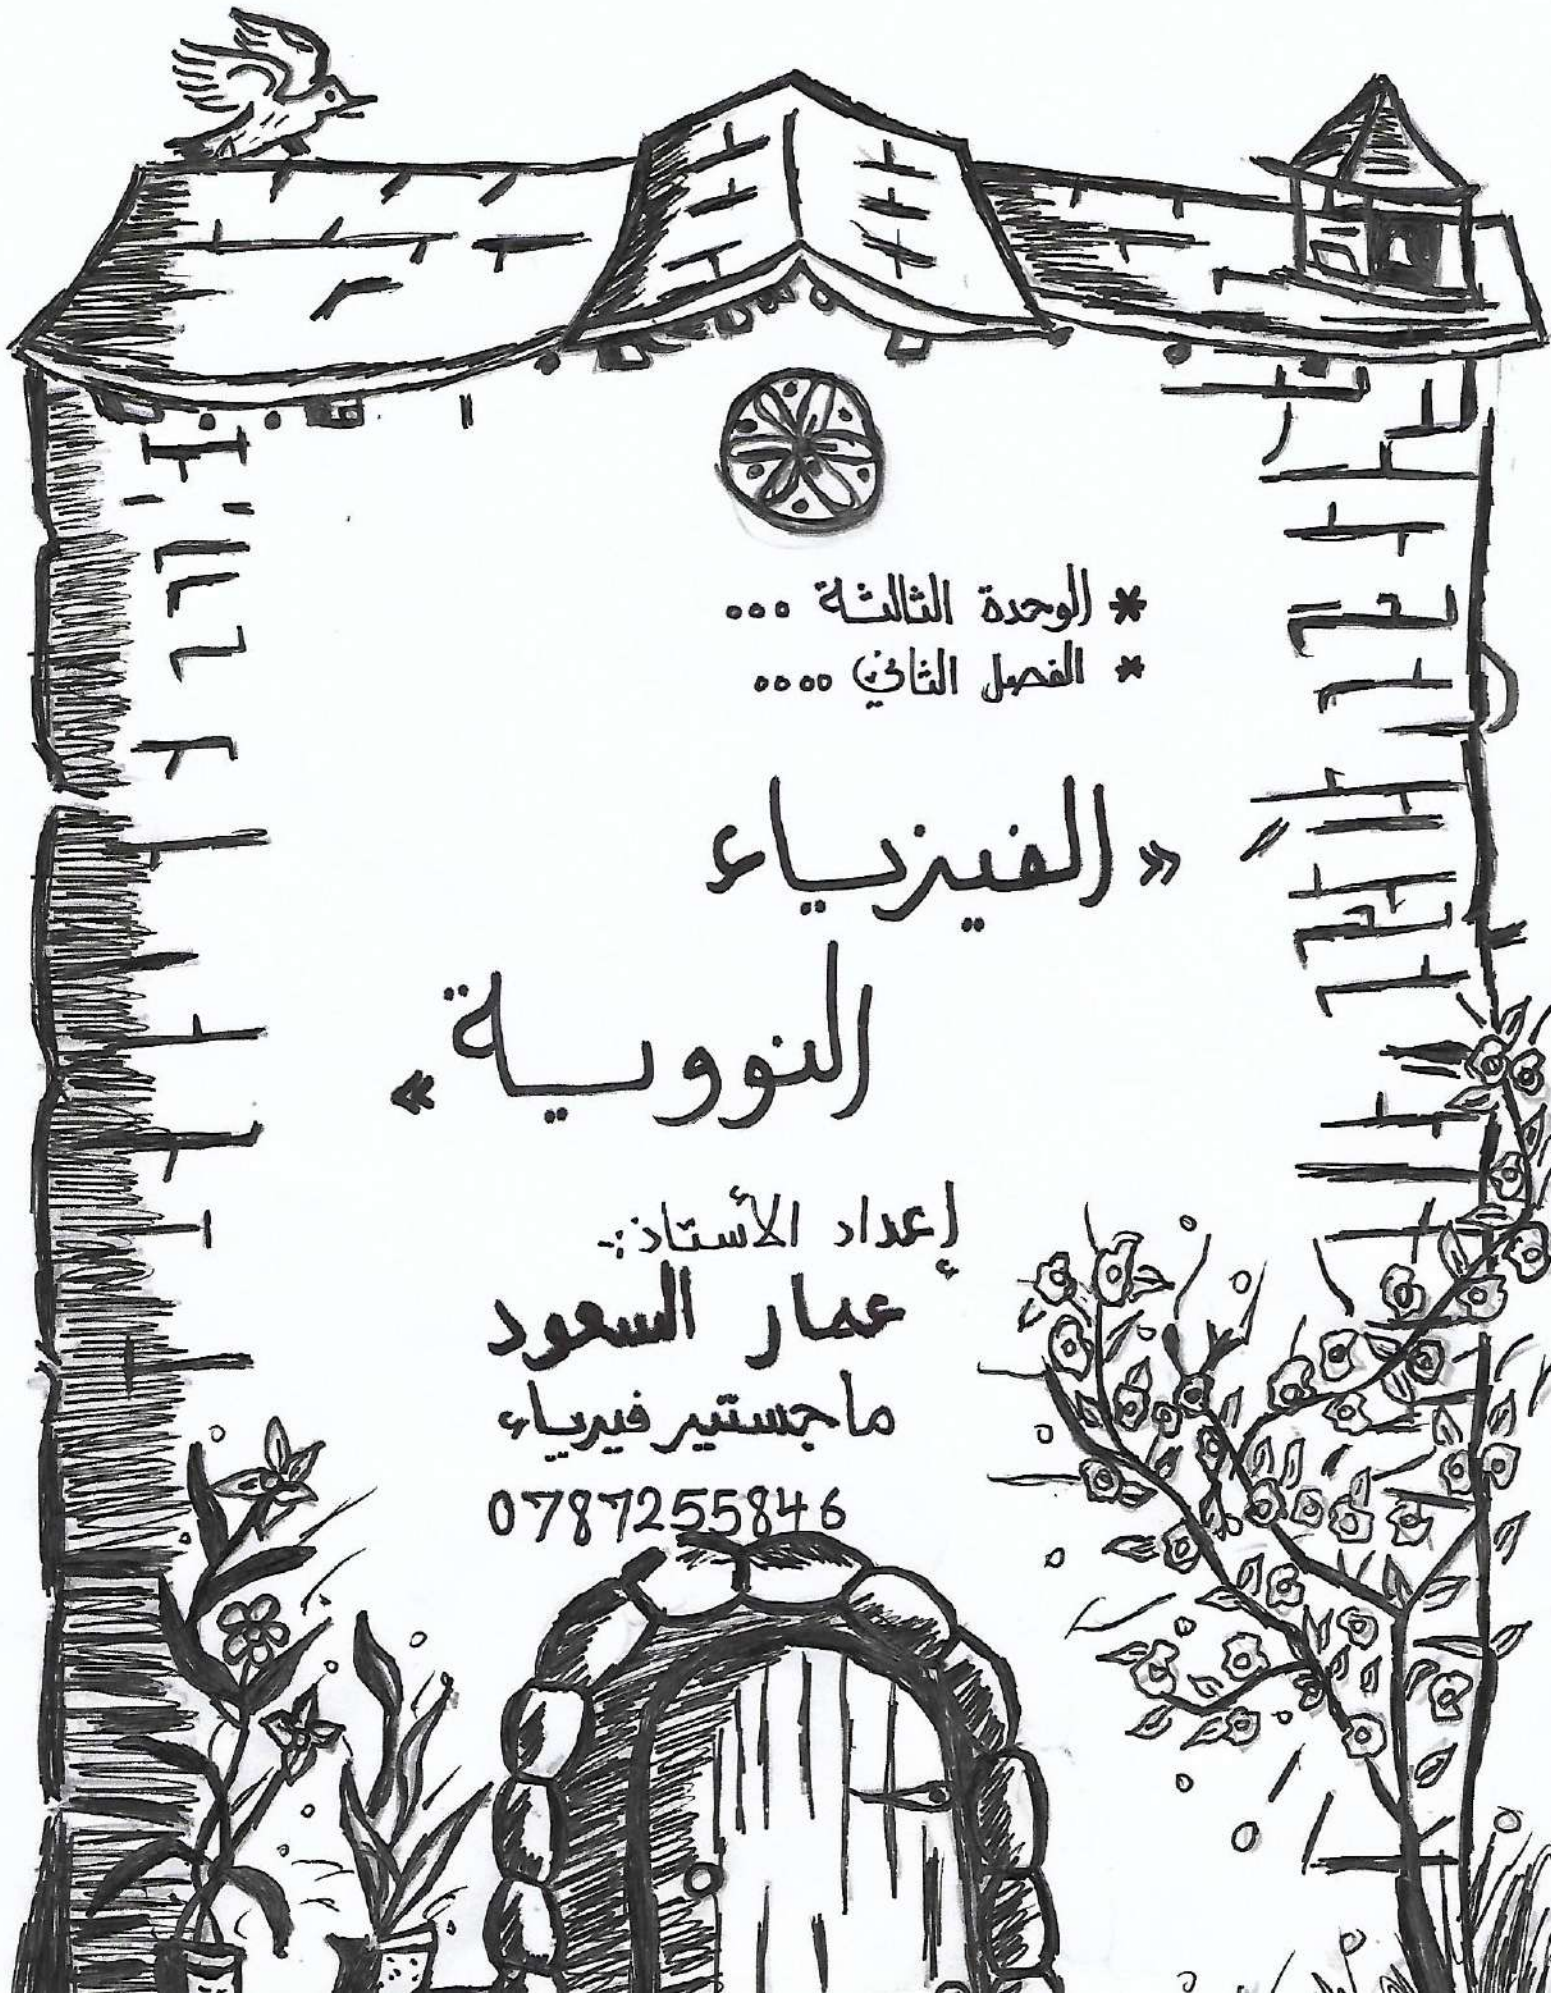 * الوحدة الثالثة ...
* الفصل الثاني ....
« الفيزياء
النووية »
إعداد الأستاذ :-
عمار السعود
ماجستير فيرياء
0787255846